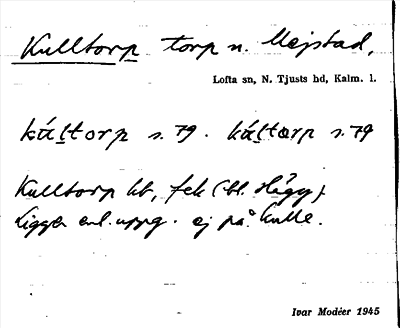 Kulltorp torp u. Mejstad,
Lofta sn, N. Tjusts hd, Kalm. l.
kúltorp s. 79. kúltorp s. 79
Kulltorp hb, fek (bl. Hägg).
Ligger enl. uppg. ej på kulle.
Ivar Modéer 1945